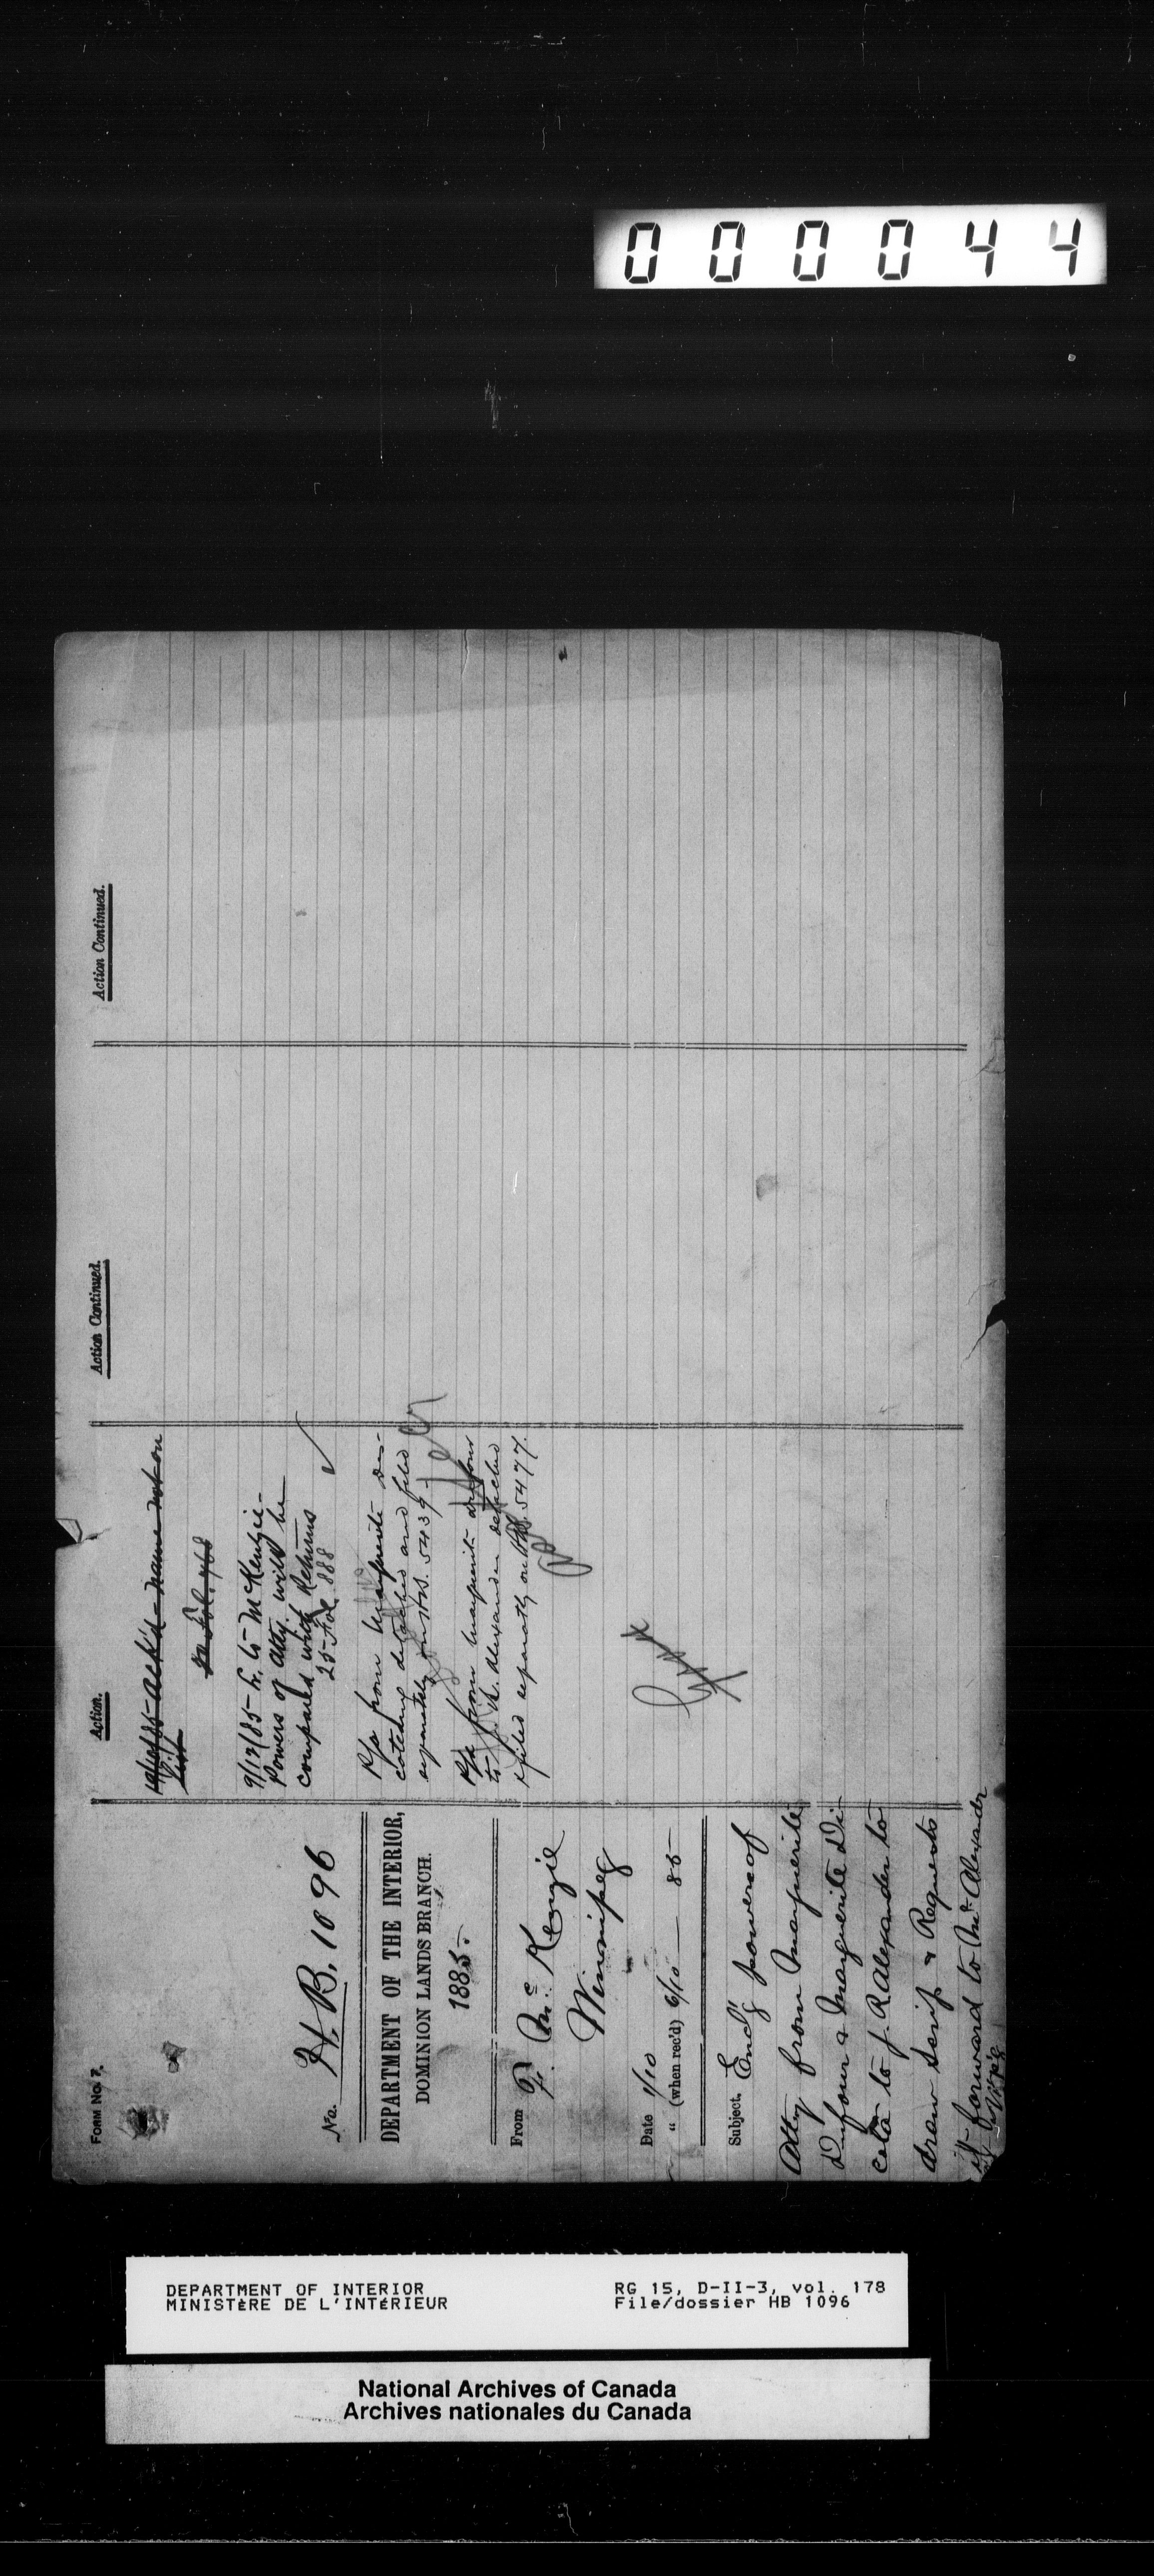 000044
FORM No. 7.
No. H.B. 1096
DEPARTMENT OF THE INTERIOR,
DOMINION LANDS BRANCH.
1885.
From P. McKenzie
Winnipeg
Date 1/10
" (when rec'd) 6/10 — 85
Subject. Encl'g powers of
Atty from Marguerite
Dufour & Marguerite Di-
cota to J. R. Alexander to
draw scrip & Requests
it forward to Mr Alexander
Action.
19/10/85 - ack'd - name not on
List
9/12/85 - L. to McKenzie -
Powers of Atty. will be
compared with Returns
25 Fol. 888
P/a from Marguerite
detached and filed
separately on HB. 5439
P/a from Marguerite Dufour
to J. R. Alexander detached
& filed separately on HB. 5477.
Action Continued.
Action Continued.
DEPARTMENT OF INTERIOR
MINISTÈRE DE L'INTÉRIEUR
RG 15, D-II-3, vol. 178
File/dossier HB 1096
National Archives of Canada
Archives nationales du Canada